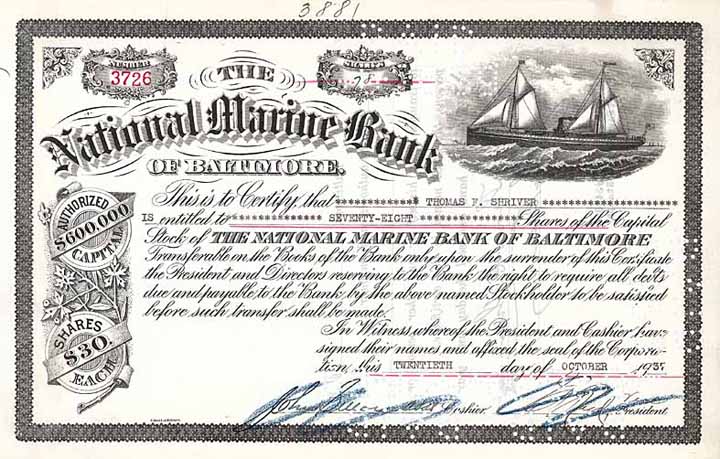 3881
NUMBER
3726
SHARES
78
THE
National Marine Bank
OF BALTIMORE.
AUTHORIZED
$600,000
CAPITAL
SHARES
$30.
EACH
This is to Certify, that ********** THOMAS F. SHRIVER **********
is entitled to ********** SEVENTY-EIGHT ********** Shares of the Capital
Stock of THE NATIONAL MARINE BANK OF BALTIMORE
Transferable on the Books of the Bank only upon the surrender of this Certificate
the President and Directors reserving to the Bank the right to require all debts
due and payable to the Bank by the above named Stockholder to be satisfied
before such transfer shall be made.
In Witness whereof the President and Cashier have
signed their names and affixed the seal of the Corpora-
tion, this TWENTIETH day of OCTOBER 1937
Cashier
President